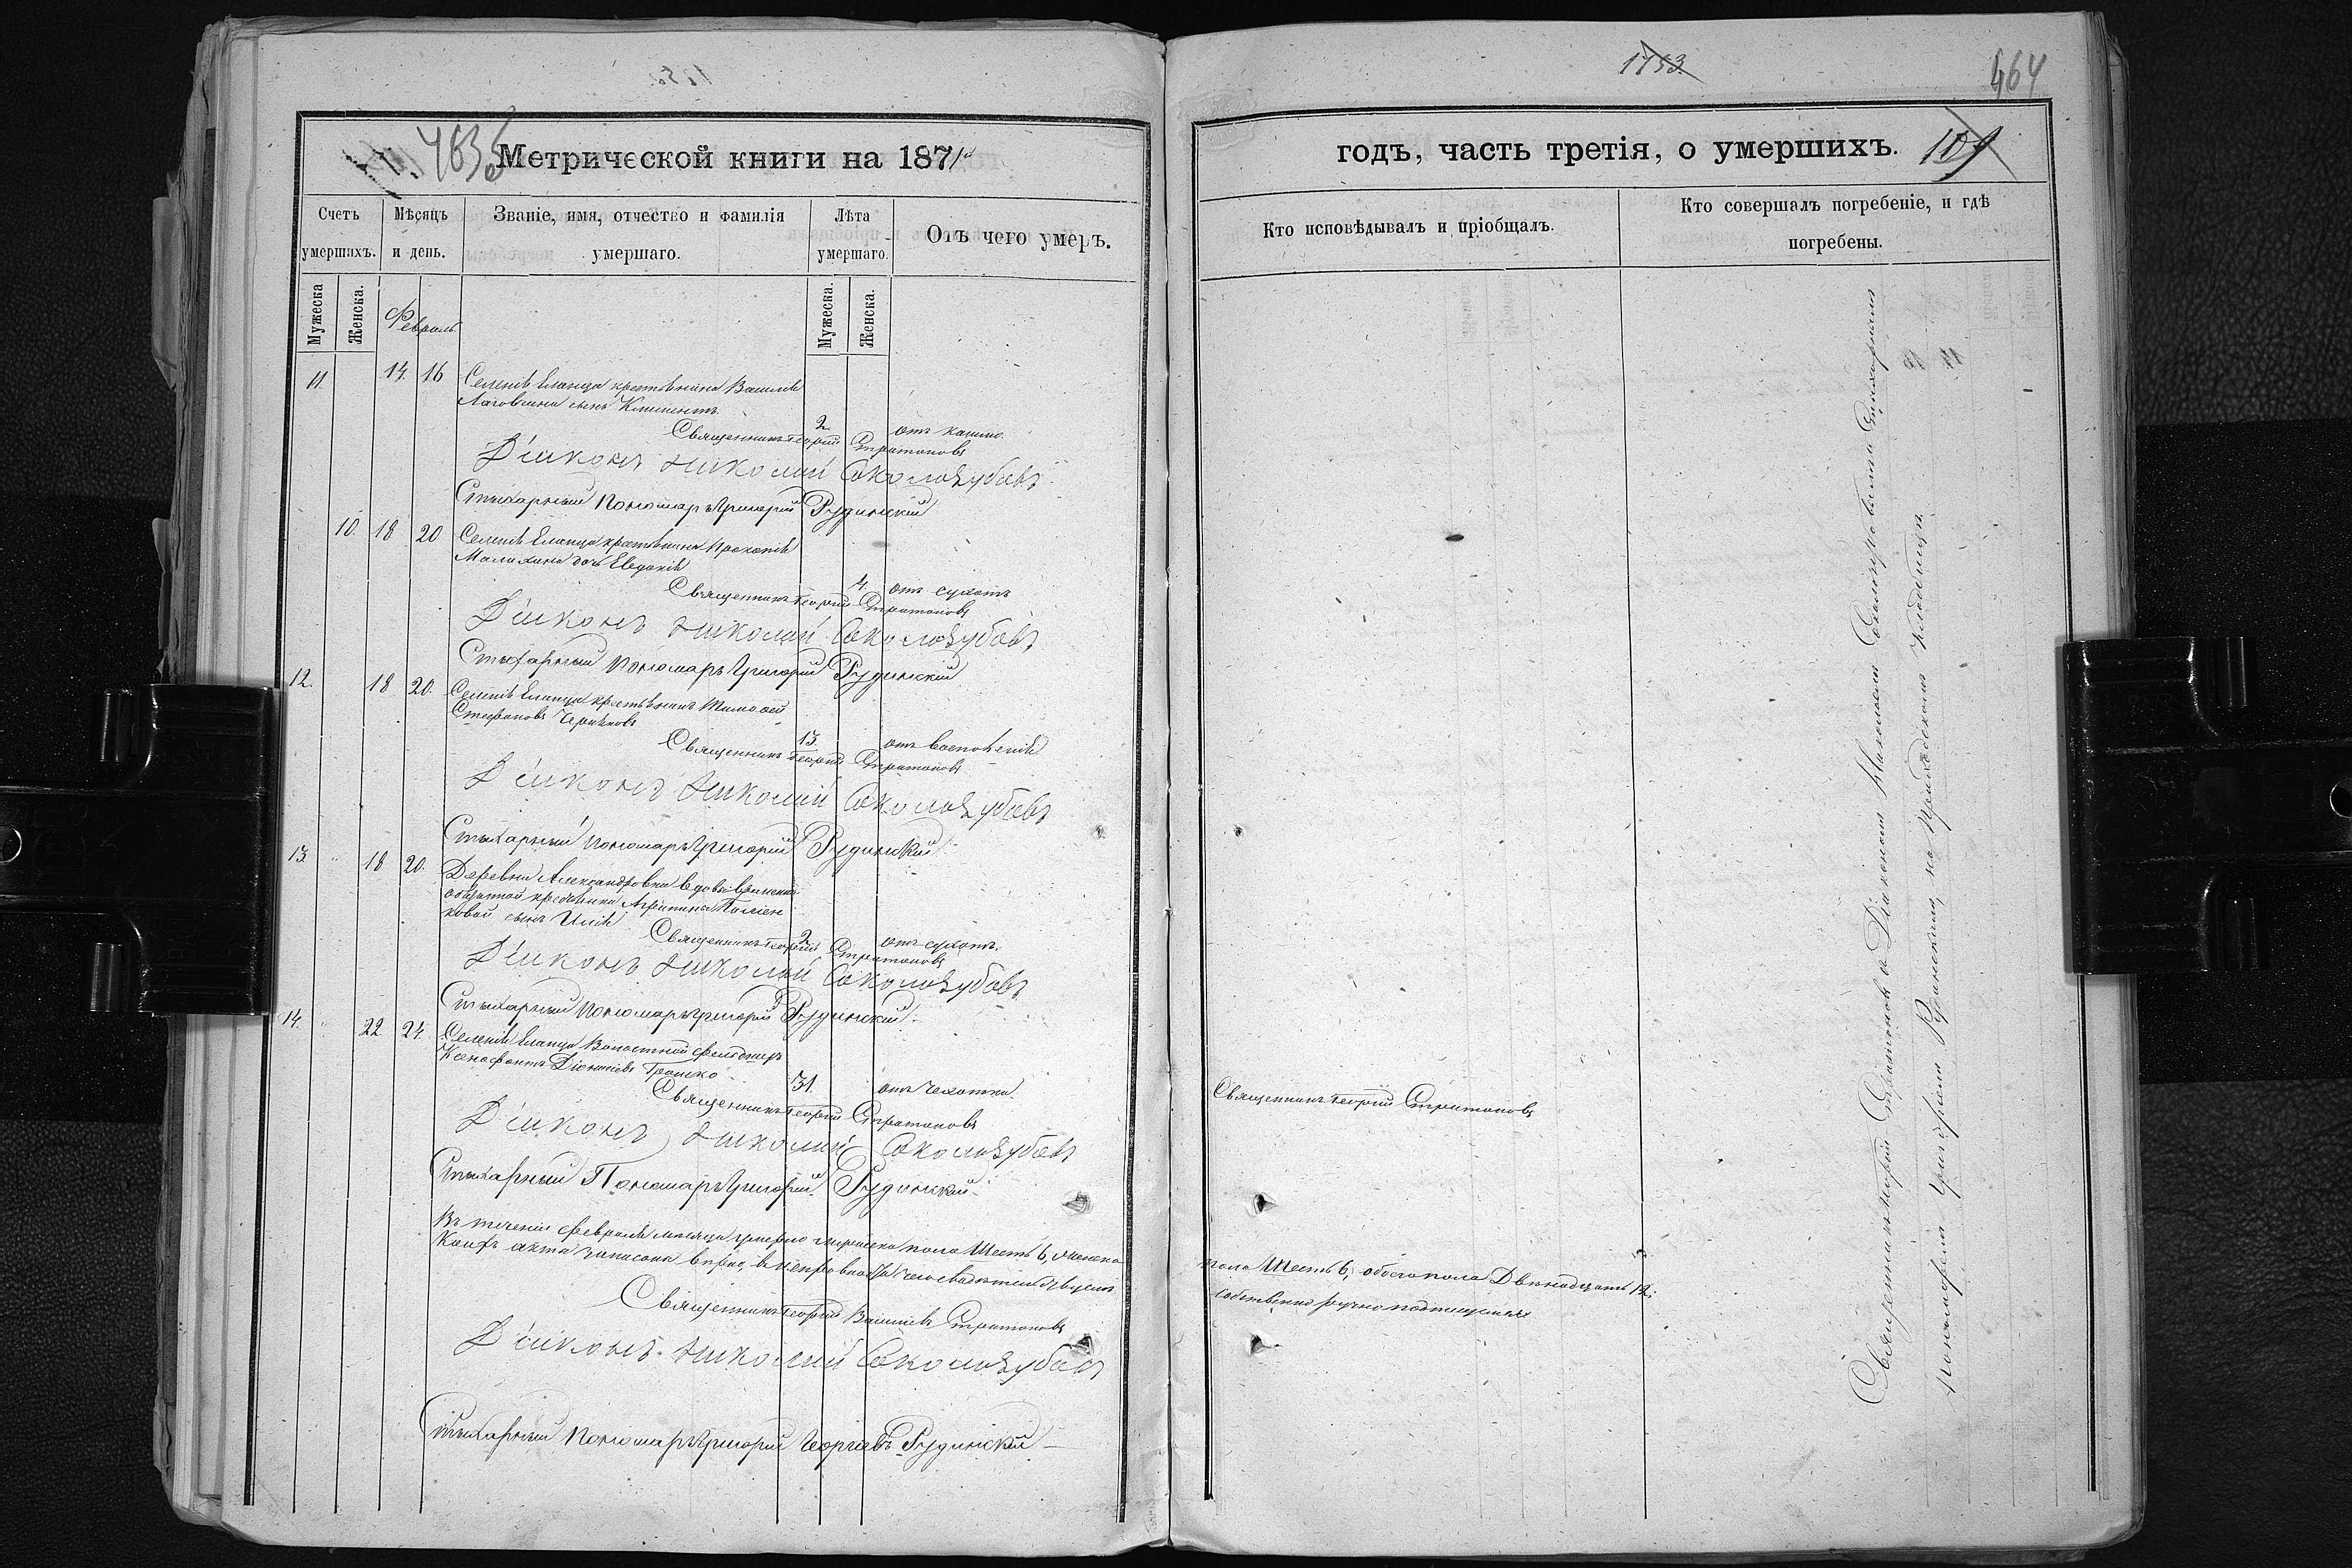 1753
464
4635
Метрической книги на 1871й
годъ, часть третія, о умершихъ.
109
Счетъ умершихъ.
Мѣсяцъ и день.
Званіе, имя, отчество и фамилія умершаго.
Лѣта умершаго.
Отъ чего умеръ.
Кто исповѣдывалъ и пріобщалъ.
Кто совершалъ погребеніе, и гдѣ погребены.
Мужеска
Женска.
Февраль
Мужеска.
Женска.
11. 14. 16 Селенія Еланца крестьянина Василія
сынъ Климентъ
2 отъ кашлю
Священникъ Георгій Стратоновъ
Діаконъ Николай Соколозубовъ
Стихарный Пономарь Григорій Рудинскій
10. 18 20 Селенія Еланца крестьянина Прокопія
Малихина дочь Евдокія
4 отъ сухотъ
Священникъ Георгій Стратоновъ
Діаконъ Николай Соколозубовъ
Стихарный Пономарь Григорій Рудинскій
12. 18 20. Селенія Еланца крестьянинъ Тимофей
Стефановъ
13. отъ воспаленія
Священникъ Георгій Стратоновъ
Діаконъ Николай Соколозубовъ
Стихарный Пономарь Григорій Рудинскій
13. " 18 20. Деревни Александровки вдовы временно
обязанной крестьянки
ковой сынъ Илія
2 отъ сухотъ.
Священникъ Георгій Стратоновъ
Діаконъ Николай Соколозубовъ
Стихарный Пономарь Григорій Рудинскій
14. " 22 24. Селенія Еланца Волостной фельдшеръ
Ксенофонтъ Діонисіевъ
31 отъ чахотки
Священникъ Георгій Стратоновъ
Священникъ Георгій Стратоновъ
Діаконъ Николай Соколозубовъ
Стихарный Пономарь Григорій Рудинскій
Въ теченіи февраля мѣсяца умерло мужеска пола Шесть 6, женска
пола Шесть 6, обоего пола Двѣнадцать 12;
акта записана вѣрно, въ чемъ
собственно ручно подписуемся
Священникъ Георгій Василіевъ Стратоновъ
Діаконъ Николай Соколозубовъ
Стихарный Пономарь Григорій Георгіевъ Рудинскій
Священникъ Георгій Стратоновъ съ Діакономъ Николаемъ Соколозубовымъ и Стихарнымъ
пономаремъ Григоріемъ Рудинскимъ, на приходскомъ кладбищѣ.